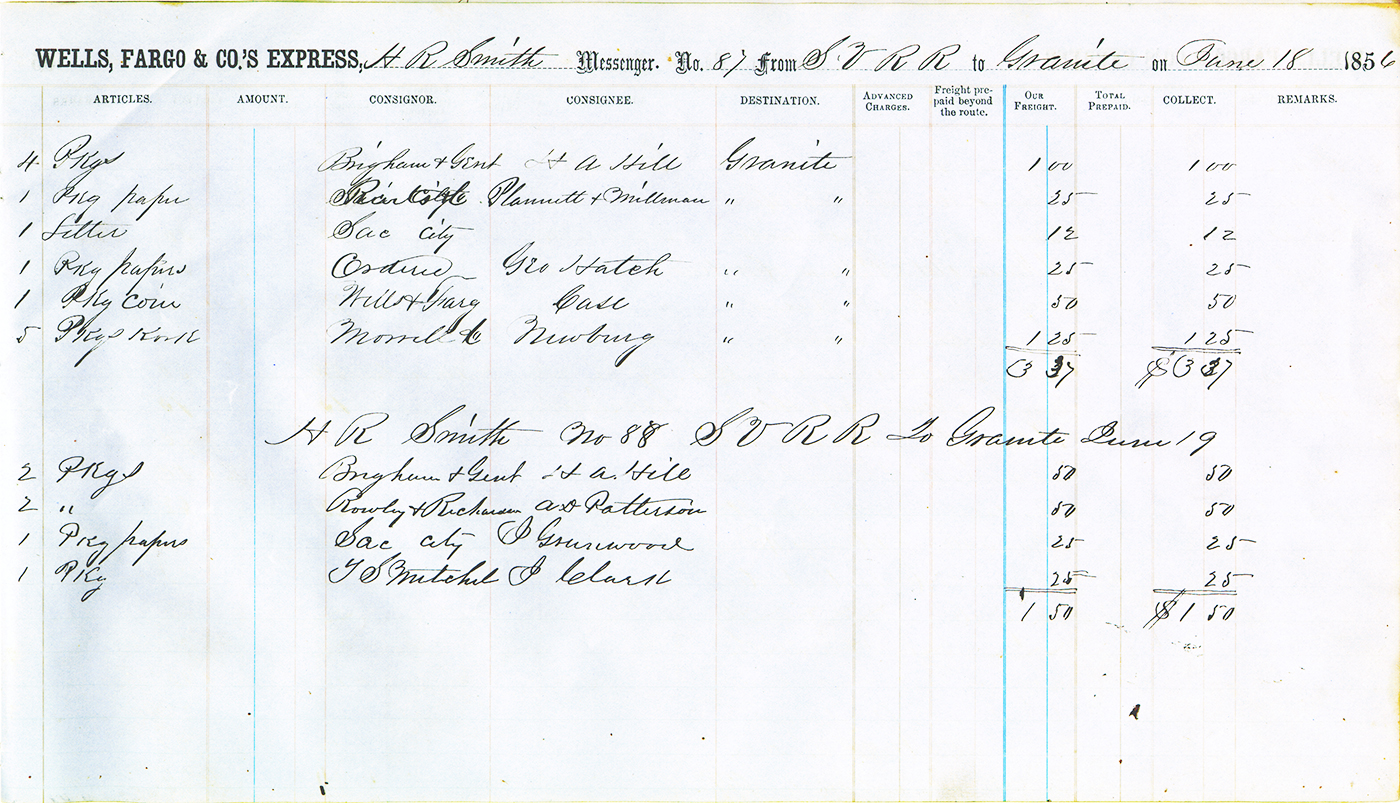 WELLS, FARGO & CO.'S EXPRESS, H R Smith Messenger. No. 87 From S V R R to Granite on June 18 1856
ARTICLES. AMOUNT. CONSIGNOR. CONSIGNEE. DESTINATION. ADVANCED CHARGES. Freight pre-paid beyond the route. OUR FREIGHT. TOTAL PREPAID. COLLECT. REMARKS.
4 Pkgs Brigham & Gent H A Hill Granite 1 00 1 00
1 Pkg paper Plannett & Millman " " 25 25
1 Letter Sac city 12 12
1 Pkg papers Ordered Geo Hatch " " 25 25
1 Pkg coin Wells & Farg Case " " 50 50
5 Pkgs Morrell Newburg " " 1 25 1 25
3 37 $ 3 37
H R Smith No 88 S V R R To Granite June 19
2 Pkgs Brigham & Gent H A. Hill 50 50
2 " Rowley & Richardson A D Patterson 50 50
1 Pkg papers Sac city J Greenwood 25 25
1 Pkg T S Mitchel J Clark 25 25
1 50 $ 1 50